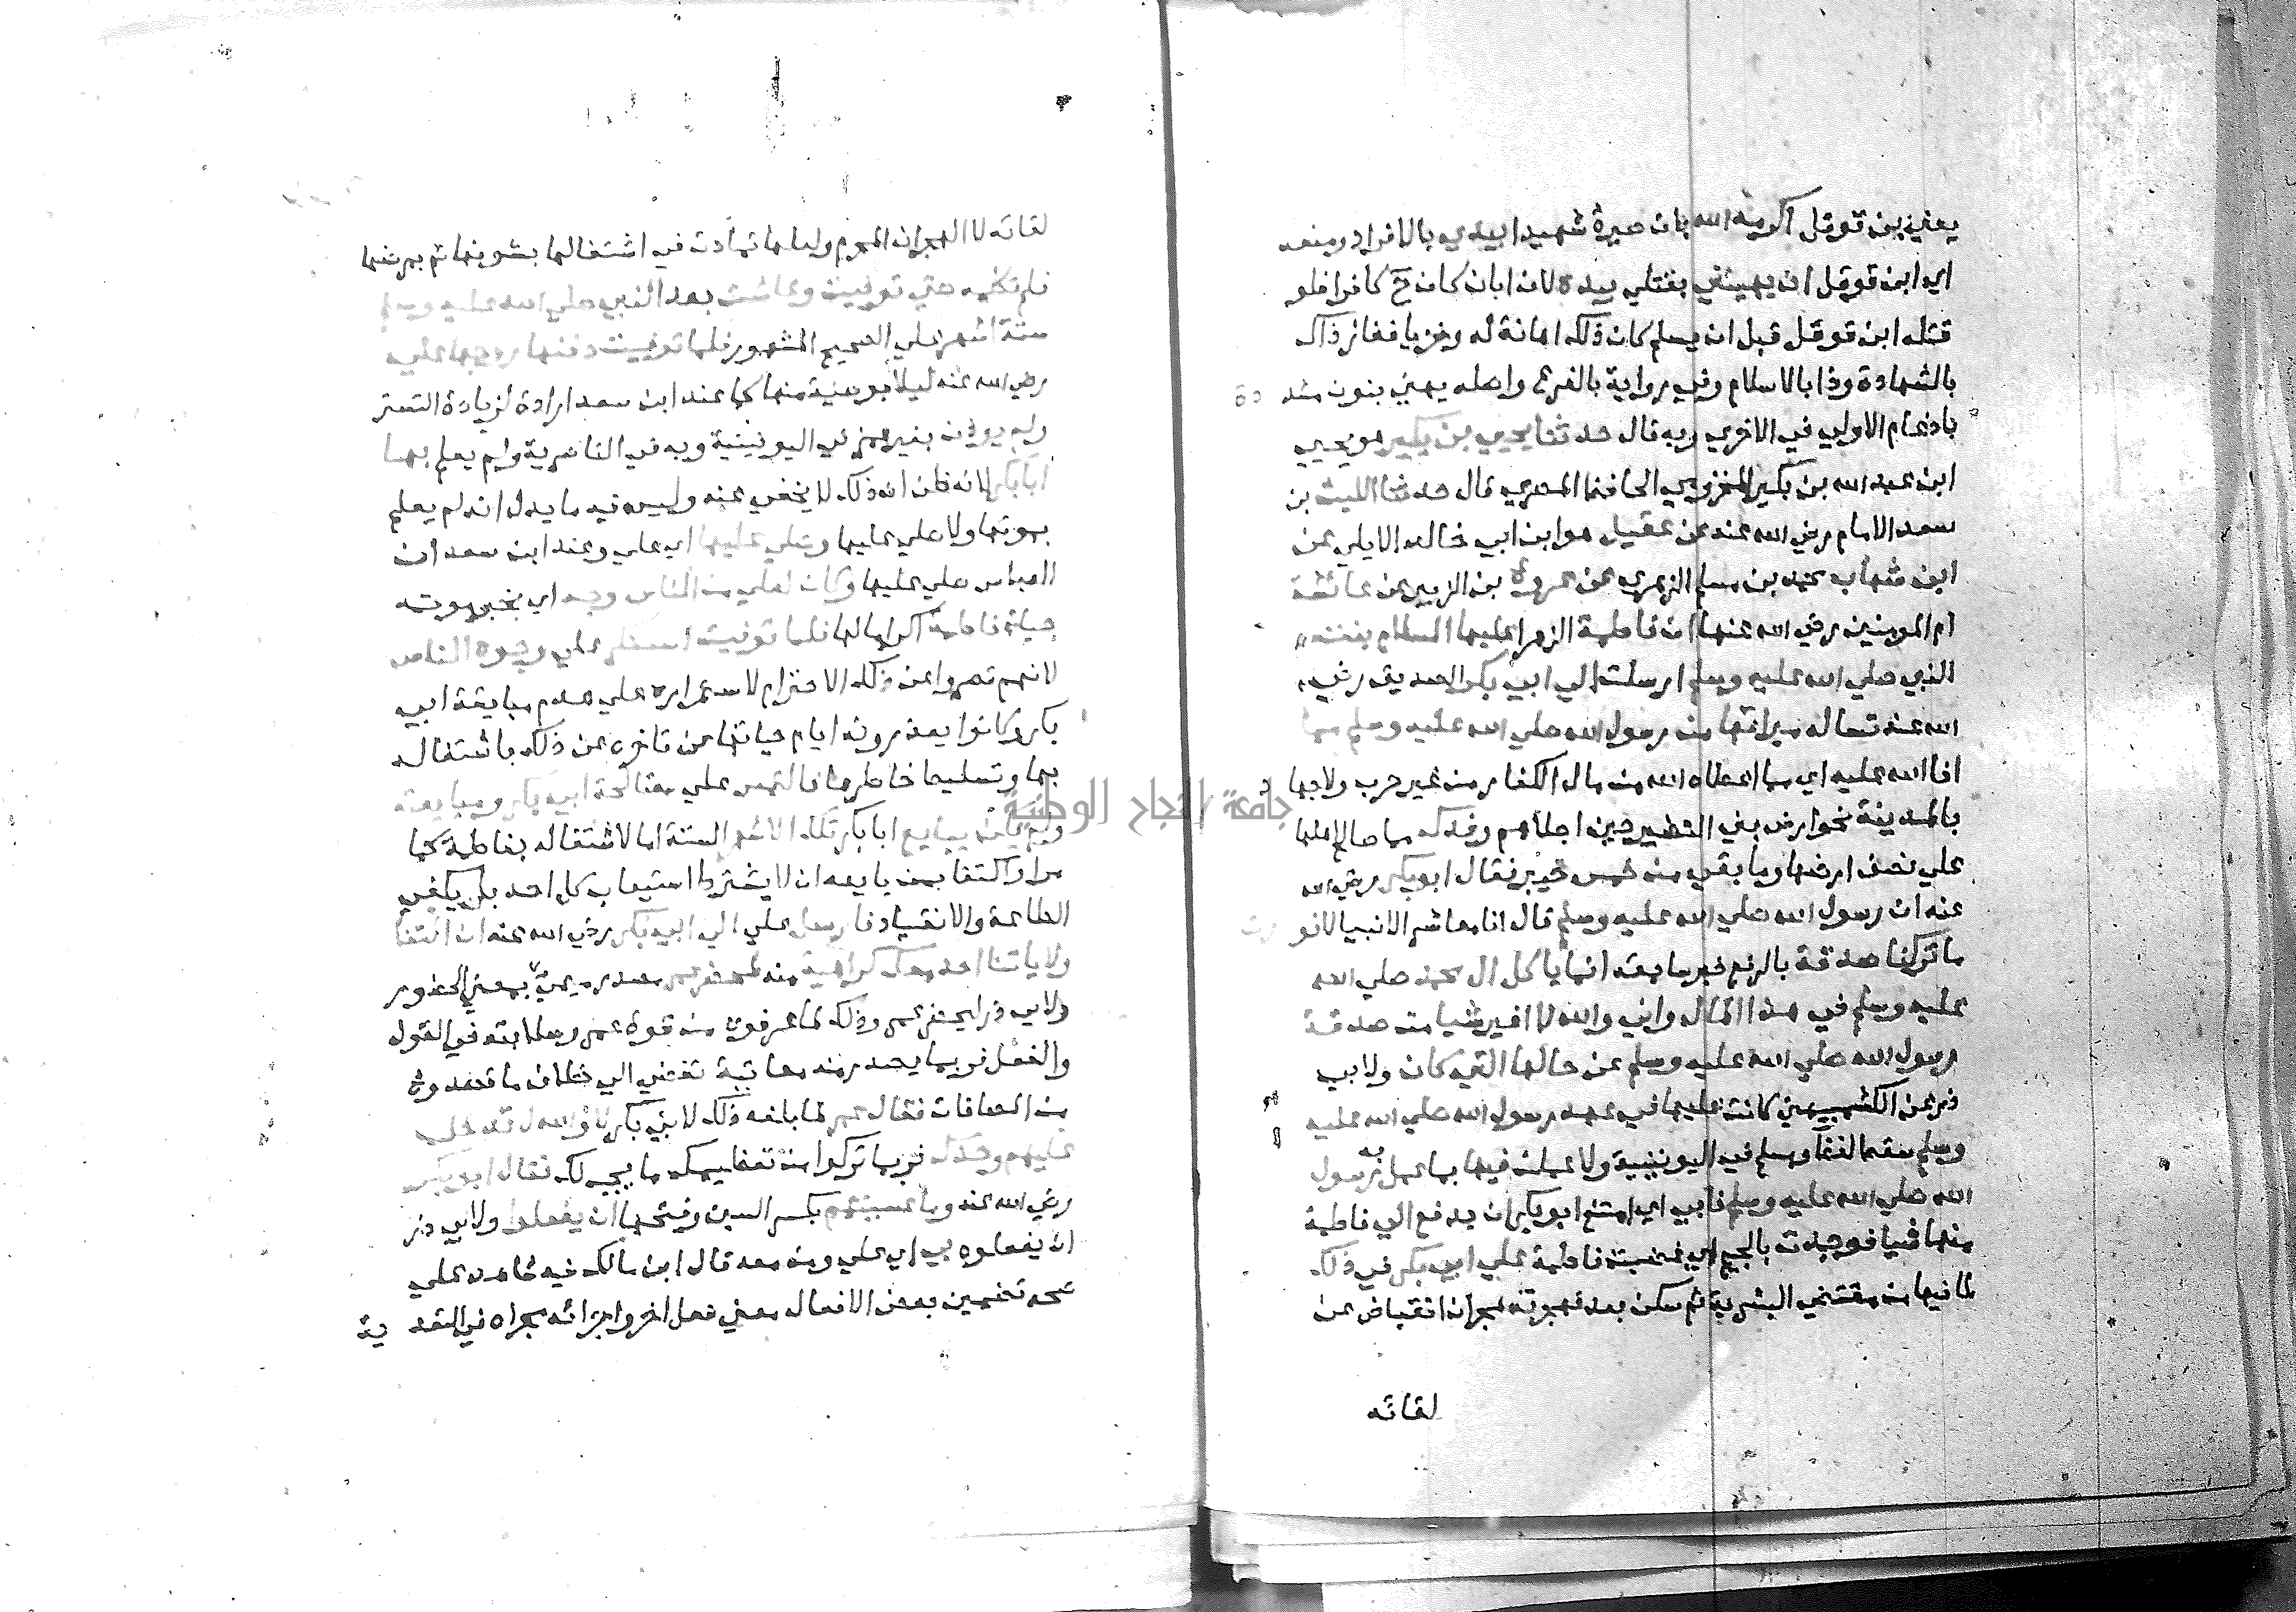 يعني بن قوقل اكرمه الله بان صيره شهيدا بيدي بالافراد ومنعه
اي ابن قوقل ان يهينني بقتلي بيده لان ابان كان ح كافرا فلو
قتله ابن قوقل قبل ان يسلم كان ذلك اهانة له وخزيا ففاز ذاك
بالشهادة وذا بالاسلام وفي رواية بالفرع واصله يهني بنون مشددة
بادغام الاولي في الاخري وبه قال حدثنا يحيي بن بكير هو يحيي
ابن عبد الله بن بكير المخزومي الحافظ المصري قال حدثنا الليث بن
سعد الامام رضي الله عنه عن عقيل هو ابن ابي خالد الايلي عن
ابن شهاب محمد بن مسلم الزهري عن عروة بن الزبير عن عائشة
ام المومنين رضي الله عنها ان فاطمة الزهرا عليها السلام بنت
النبي صلي الله عليه وسلم ارسلت الي ابي بكر الصديق رضي
الله عنه تساله ميراثها من رسول الله صلي الله عليه وسلم مما
افا الله عليه اي مما اعطاه الله من مال الكفار من غير حرب ولا جهاد
بالمدينة نحو ارض بني النضير حين اجلاهم وفدك مما صالح اهلها
علي نصف ارضها وما بقي من خمس خيبر فقال ابو بكر رضي الله
عنه ان رسول الله صلي الله عليه وسلم قال انا معاشر الانبيا لا نورث
ما تركنا صدقة بالرفع خبر سابقه انما ياكل ال محمد صلي الله
عليه وسلم في هذا المال واني والله لا اغير شيا من صدقة
رسول الله صلي الله عليه وسلم عن حالها التي كان ولابي
ذر عن الكشميهني كانت عليها في عهد رسول الله صلي الله عليه
وسلم سقط لفظ وسلم في اليونينية ولا عملن فيها بما عمل به رسول
الله صلي الله عليه وسلم فابي اي امتنع ابو بكر ان يدفع الي فاطمة
منها شيا فوجدت بالجيم اي غضبت فاطمة علي ابي بكر في ذلك
لما فيها من مقتضي البشرية ثم سكن بعد فهجرته هجران انقباض عن
لقائه
لقائه لا الهجران المحرم ولعلها تمادت في اشتغالها بشونها ثم بمرضها
فلم تكلمه حتي توفيت وعاشت بعد النبي صلي الله عليه وسلم
ستة اشهر علي الصحيح المشهور فلما توفيت دفنها زوجها علي
رضي الله عنه ليلا بوصية منها كما عند ابن سعد ارادة لزيادة التستر
ولم يوذن بغير همز في اليونينية وبه في الناصرية ولم يعلم بها
ابا بكر لانه ظن ان ذلك لا يخفي عنه وليس فيه ما يدل انه لم يعلم
بموتها ولا صلي عليها وصلي عليها اي علي وعند ابن سعد ان
العباس صلي عليها وكان لعلي من الناس وجه اي يخبر بموته
حياة فاطمة اكراما لها فلما توفيت استنكر علي وجوه الناس
لانهم قصروا عن ذلك الاحترام لاستمراره علي عدم مبايعة ابي
بكر وكانوا يعذرونه ايام حياتها عن تاخره عن ذلك باشتغاله
بها وتسلية خاطرها فالتمس علي مصالحة ابي بكر ومبايعته
ولم يكن يبايع ابا بكر تلك الاشهر الستة اما لاشتغاله بفاطمة كما
مر او اكتفا بمن بايعه ان لا يشترط استيعاب كل احد بل يكفي
الطاعة والانقياد فارسل علي الي ابي بكر رضي الله عنه ان ائتنا
ولا ياتنا احد معك كراهية منه لمحضر عمر مصدر ميمي بمعني الحضور
ولابي ذر ليحضر عمر وذلك لما عرفوه من قوة عمر وصلابته في القول
والفعل فربما يصدر منه معاتبة تفضي الي خلاف ما قصدوه
من المصافات فقال عمر لما بلغه ذلك لابي بكر لا والله لا تدخل
عليهم وحدك فربما تركوا من تعظيمك ما يجب لك فقال ابو بكر
رضي الله عنه وما عسيتهم بكسر السين وفتحها ان يفعلوا ولابي ذر
ان يفعلوه بي اي علي ومن معه قال ابن مالك فيه شاهد علي
صحة تضمين بعض الافعال معني فعل اخر واجرائه مجراه في التعدية
جامعة النجاح الوطنية